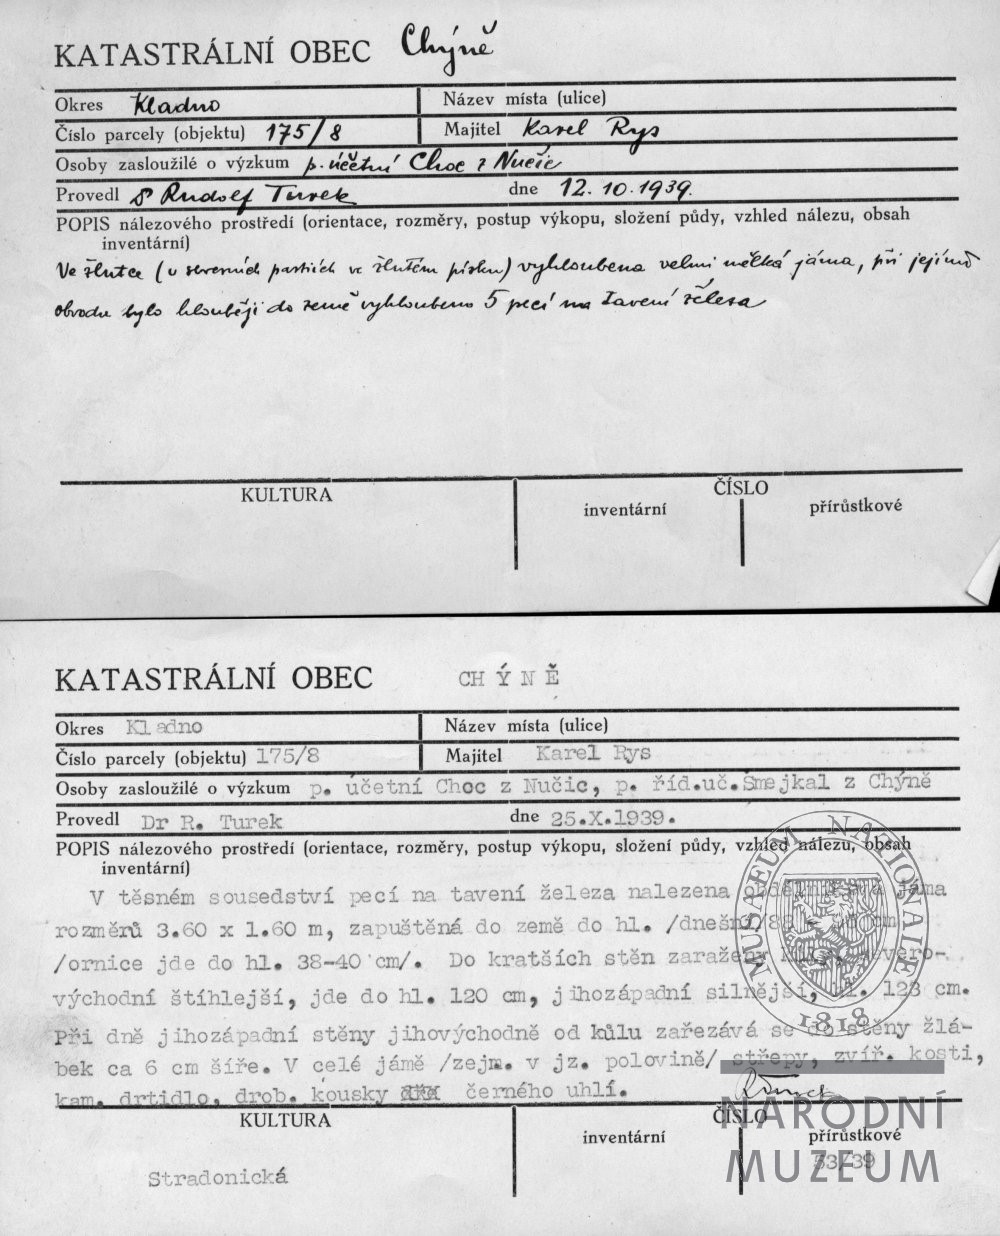 KATASTRÁLNÍ OBEC Chýně
Okres Kladno Název místa (ulice)
Číslo parcely (objektu) 175/8 Majitel Karel Rys
Osoby zasloužilé o výzkum p. účetní Choc z Nučic
Provedl Dr Rudolf Turek dne 12.10.1939.
POPIS nálezového prostředí (orientace, rozměry, postup výkopu, složení půdy, vzhled nálezu, obsah
inventární)
Ve žlutce (v severních partiích ve žlutém písku) vyhloubena velmi mělká jáma, při jejímž
obvodu bylo hlouběji do země vyhloubeno 5 pecí na tavení železa
KULTURA ČÍSLO
inventární přírůstkové
KATASTRÁLNÍ OBEC CHÝNĚ
Okres Kladno Název místa (ulice)
Číslo parcely (objektu) 175/8 Majitel Karel Rys
Osoby zasloužilé o výzkum p. účetní Choc z Nučic, p. říd.uč.Šmejkal z Chýně
Provedl Dr R. Turek dne 25.X.1939.
POPIS nálezového prostředí (orientace, rozměry, postup výkopu, složení půdy, vzhled nálezu, obsah
inventární)
V těsném sousedství pecí na tavení železa nalezena jáma
rozměrů 3.60 x 1.60 m, zapuštěná do země do hl. /dnešní/ cm
/ornice jde do hl. 38-40 cm/. Do kratších stěn zaraženy severo-
východní štíhlejší, jde do hl. 120 cm, jihozápadní silnější, hl. 123 cm.
Při dně jihozápadní stěny jihovýchodně od kůlu zařezává se do stěny žlá-
bek ca 6 cm šíře. V celé jámě /zejm. v jz. polovině/ střepy, zvíř. kosti,
kam. drtidlo, drob. kousky černého uhlí.
RTurek
KULTURA ČÍSLO
inventární přírůstkové
Stradonická 53/39
MUSAEUM NATIONALE
1818
NÁRODNÍ
MUZEUM